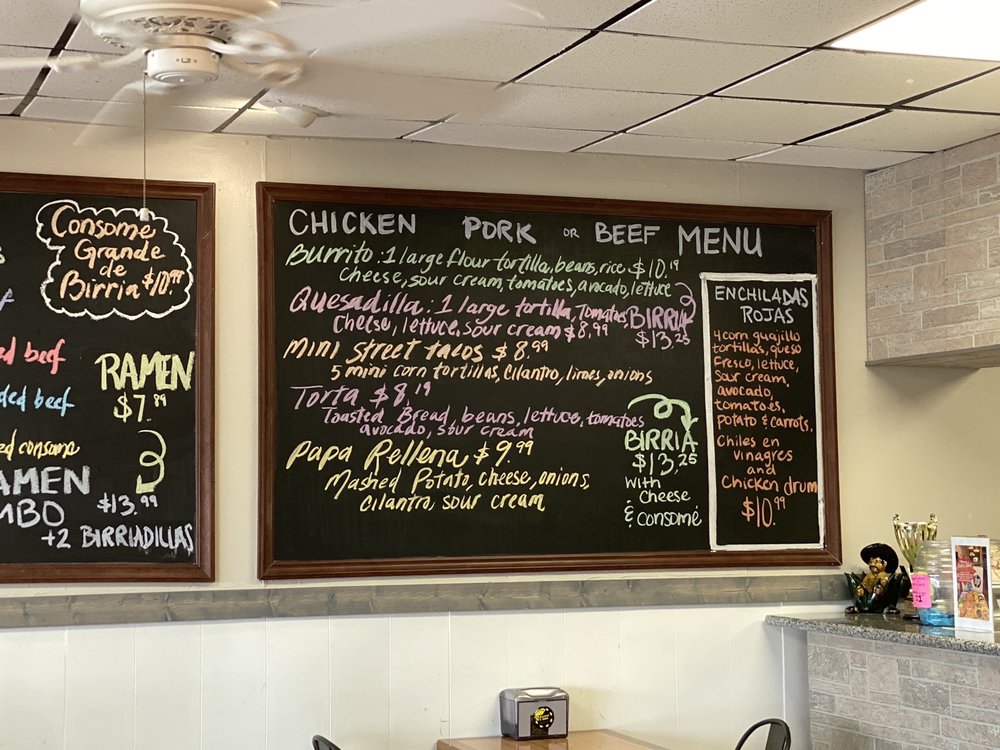 Consome
Grande
de
Birria $10.99
ed beef
RAMEN
$7.89
ded beef
ed consome
AMEN
MBO
$13.99
+2 BIRRIADILLAS
CHICKEN PORK OR BEEF MENU
Burrito: 1 large flour tortilla, beans, rice $10.19
cheese, sour cream, tomatoes, avocado, lettuce
Quesadilla: 1 large tortilla, Tomatoes,
cheese, lettuce, sour cream $8.99
BIRRIA
$13.25
Mini Street tacos $8.99
5 mini corn tortillas, cilantro, limes, onions
Torta $8.19
Toasted Bread, beans, lettuce, tomatoes
avocado, sour cream
BIRRIA
$13.25
with
cheese
& consomé
Papa Rellena $9.99
Mashed Potato, cheese, onions,
cilantro, sour cream
ENCHILADAS
ROJAS
4 corn guajillo
tortillas, queso
fresco, lettuce,
sour cream,
avocado,
tomatoes,
potato & carrots,
Chiles en
vinagres
and
Chicken drum
$10.99